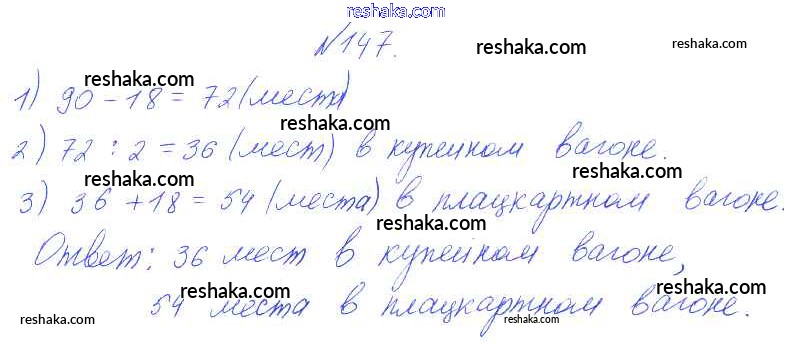 reshaka.com
№147. reshaka.com reshaka.com
reshaka.com
1) 90 - 18 = 72 (места)
reshaka.com
2) 72 : 2 = 36 (мест) в купейном вагоне.
reshaka.com reshaka.com
3) 36 + 18 = 54 (места) в плацкартном вагоне.
reshaka.com
Ответ: 36 мест в купейном вагоне,
reshaka.com reshaka.com
54 места в плацкартном вагоне.
reshaka.com reshaka.com